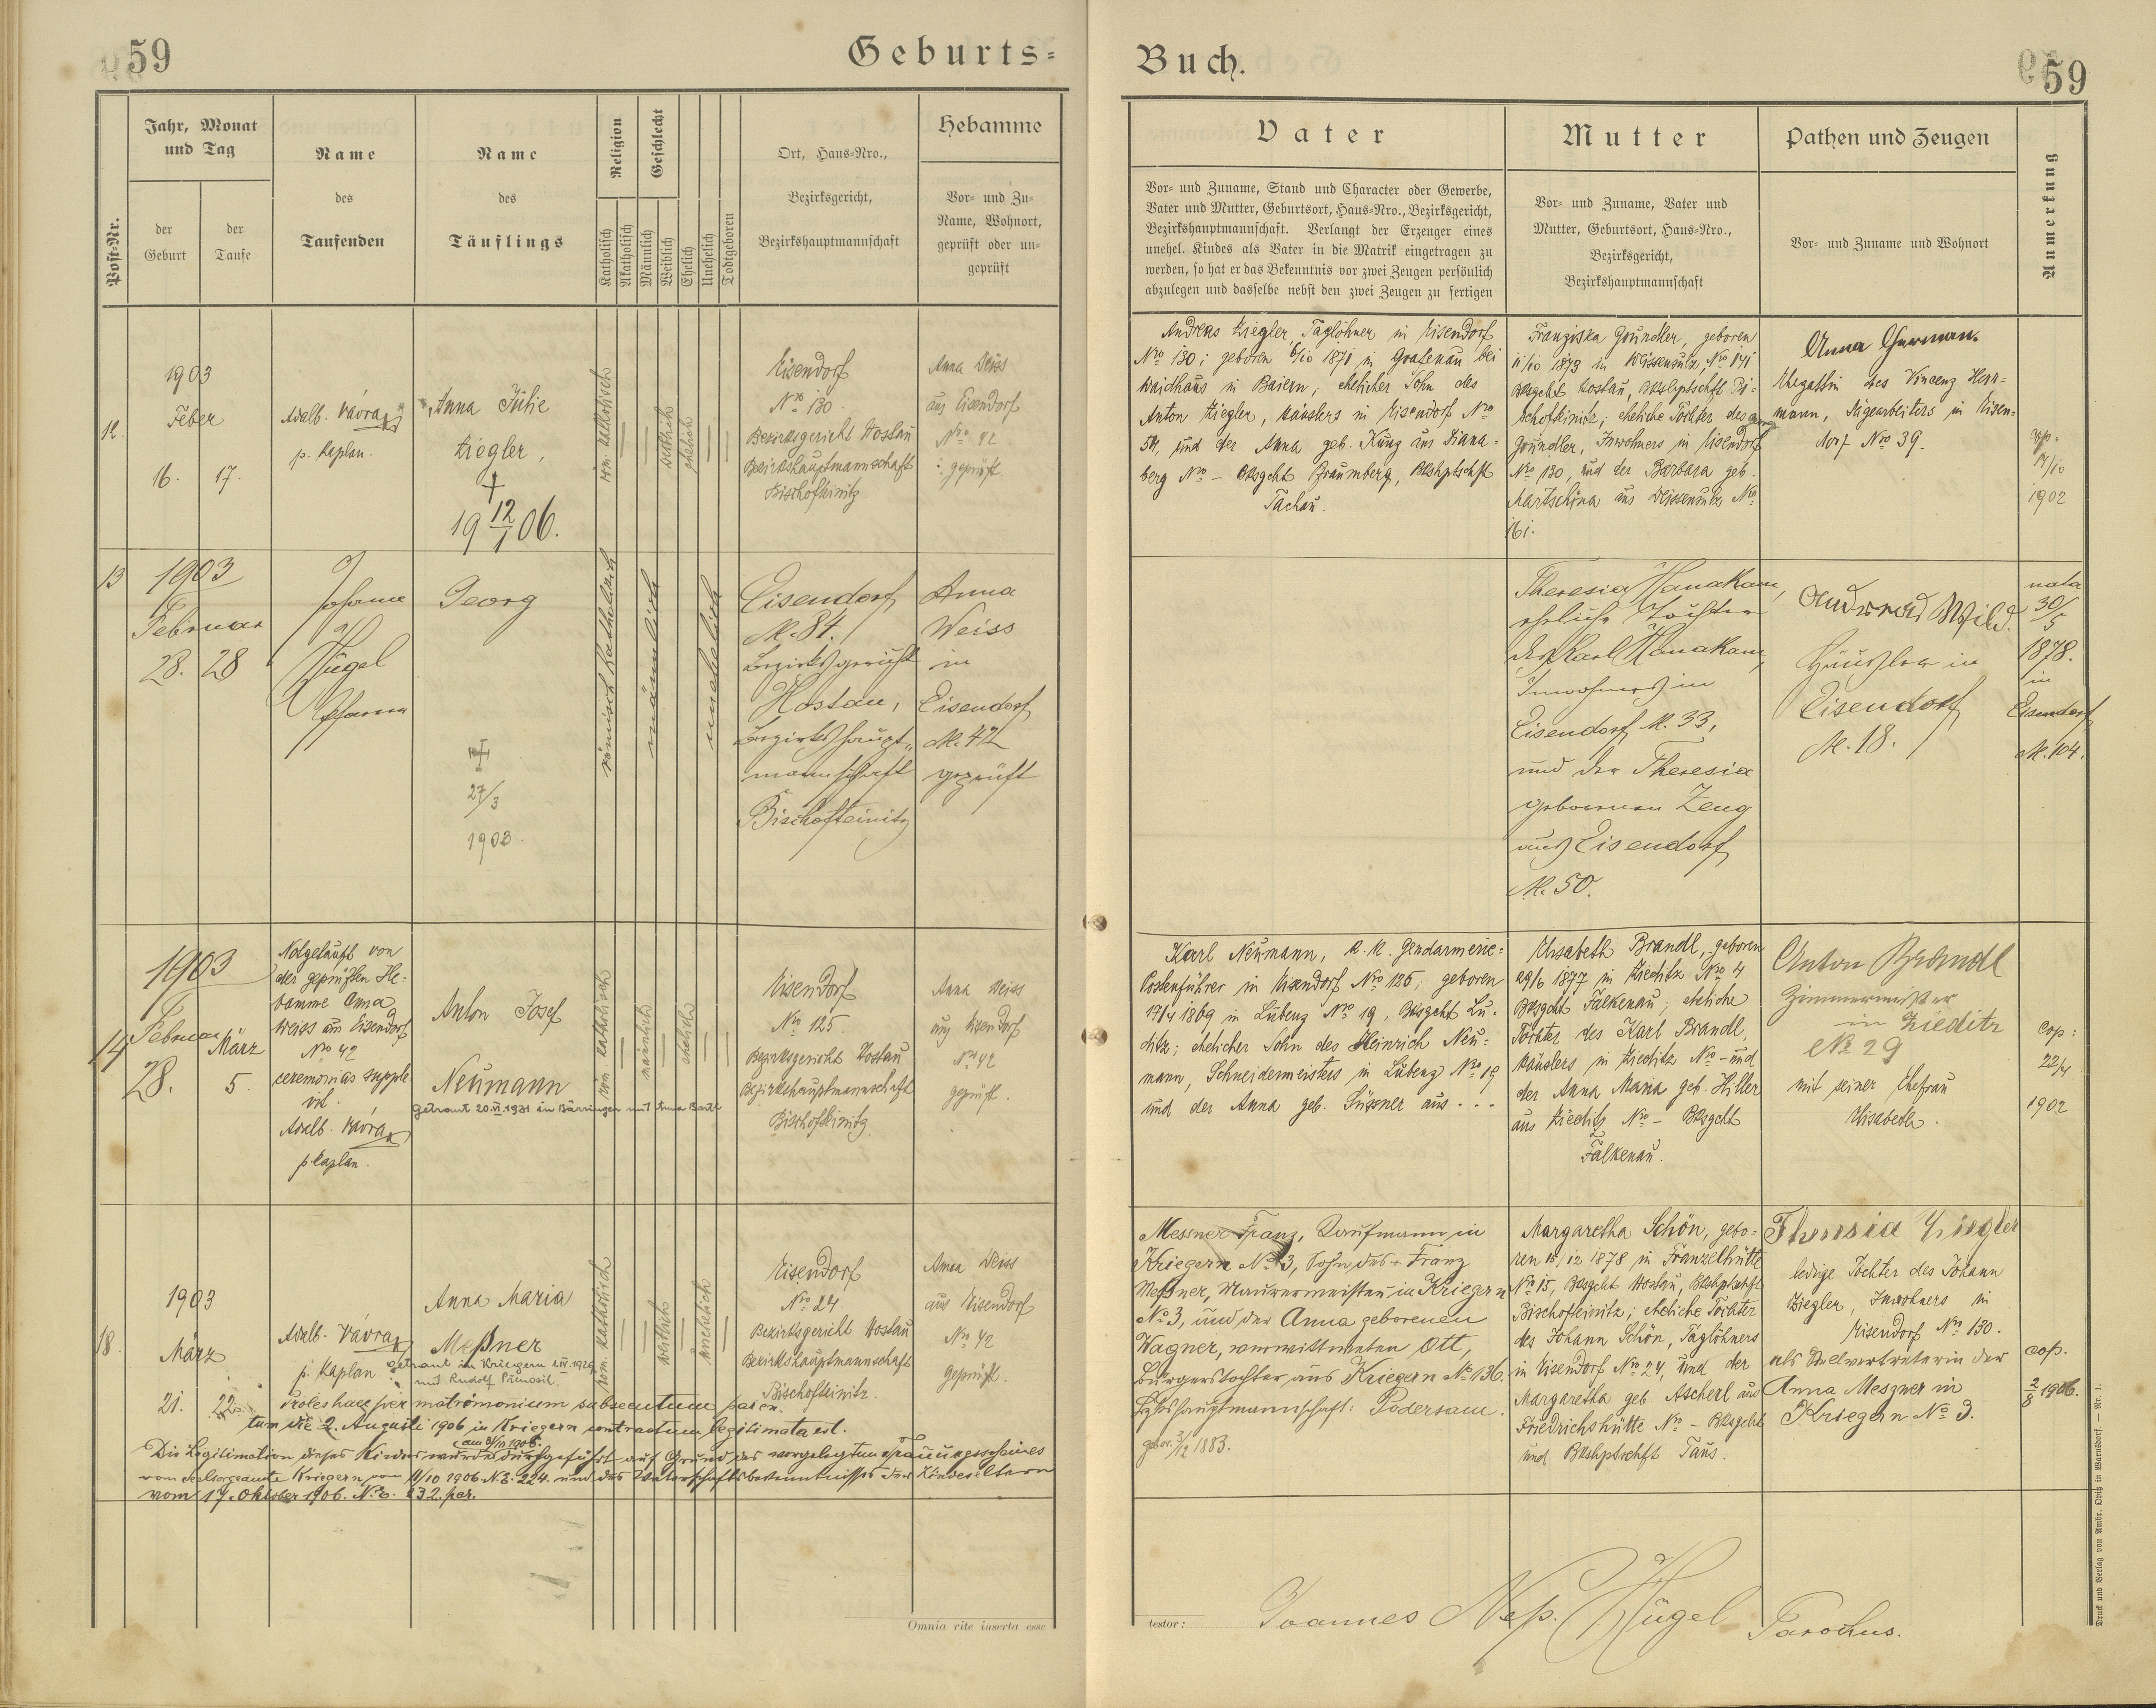 59
Geburts=
Jahr, Monat
und Tag
Post-Nr.
der
Geburt
der
Taufe
Name
des
Taufenden
Name
des
Täuflings
Religion
Geschlecht
Katholisch
Akatholisch
Männlich
Weiblich
Ehelich
Unehelich
Todtgeboren
Ort, Haus-Nro.,
Bezirksgericht,
Bezirkshauptmannschaft
Hebamme
Vor- und Zu-
Name, Wohnort,
geprüft oder un-
geprüft
12.
1903
Feber
16. 17.
Adalb. Vávra
p. Kaplan.
Anna Julie
Ziegler.
†
19 12/1 06.
röm. katholisch
weiblich
ehelich
Eisendorf
Nro 130.
Bezirksgericht Hostau
Bezirkshauptmannschaft
Bischofteinitz
Anna Weiss
aus Eisendorf
Nro 42
geprüft.
13
1903
Februar
28. 28
Johann
N.
Hügel
Pfarrer
Georg
†
27/3
1903.
römisch katholisch
männlich
unehelich
Eisendorf
N. 84.
Bezirksgericht
Hostau,
Bezirkshaupt-
mannschaft
Bischofteinitz
Anna
Weiss
in
Eisendorf
N. 42
geprüft
14
1903
Februar März
28. 5.
Notgetauft von
der geprüften He-
bamme Anna
Weiss aus Eisendorf
Nro 42
ceremonias supple-
vit.
Adalb. Vávra
p. Kaplan.
Anton Josef
Neumann
getraut 20.VI.1931 in Bärringen mit Anna Barth
röm. katholisch
männlich
ehelich
Eisendorf
Nro 125
Bezirksgericht Hostau
Bezirkshauptmannschaft
Bischofteinitz
Anna Weiss
aus Eisendorf
Nro 42
geprüft.
18.
1903
März
21. 22.
Adalb. Vávra
p. Kaplan
Anna Maria
Meßner
getraut in Kriegern
mit Rudolf
röm. katholisch
weiblich
unehelich
Eisendorf
Nro 24.
Bezirksgericht Hostau
Bezirkshauptmannschaft
Bischofteinitz.
Anna Weiss
aus Eisendorf
Nro 42
geprüft.
Proles haec per matrimonium subsequutum paren-
tum die 2. Augusti 1906 in Kriegern contractum legitimata est.
Die Legitimation dieses Kindes wurde durchgeführt auf Grund des vorgelegten Trauungsscheines
vom Seelsorgeamte Kriegern vom 11/10 1906 N.E. 224. und des Vaterschaftsbekenntnisses der Kindeseltern
vom 17. Oktober 1906. N.E. 232. par.
Omnia rite inserta esse
Buch.
59
Vater
Vor- und Zuname, Stand und Character oder Gewerbe,
Vater und Mutter, Geburtsort, Haus-Nro., Bezirksgericht,
Bezirkshauptmannschaft. Verlangt der Erzeuger eines
unehel. Kindes als Vater in die Matrik eingetragen zu
werden, so hat er das Bekenntnis vor zwei Zeugen persönlich
abzulegen und dasselbe nebst den zwei Zeugen zu fertigen
Mutter
Vor- und Zuname, Vater und
Mutter, Geburtsort, Haus-Nro.,
Bezirksgericht,
Bezirkshauptmannschaft
Pathen und Zeugen
Vor- und Zuname und Wohnort
Anmerkung
Andreas Ziegler, Taglöhner in Eisendorf
Nro 130; geboren 6/10 1871 in Goatenau bei
Waidhaus in Baiern; ehelicher Sohn des
Anton Ziegler, Häuslers in Eisendorf Nro
54, und der Anna geb. Kung aus Diana-
berg Nro – Bzsgcht Pfraumberg, Bzkhptschft
Tachau.
Franziska Gründler, geboren
11/10 1873 in Weissensulz, Nro 141
Bzsgcht Hostau, Bzkhptschft Bi-
schofteinitz; eheliche Tochter des
Gründler, Inwohners in Eisendorf
Nro 130, und der Barbara geb.
Martschina aus Weissensulz Nro
161.
Anna Herman.
Ehegattin des Vincenz Herr-
mann, Sägearbeiters in Eisen-
dorf Nro 39.
cop.
14/10
1902
Theresia Hanakam,
eheliche Tochter
des Karl Hanakam,
Inwohners in
Eisendorf N. 33,
und der Theresia
geborenen Zeug
aus Eisendorf
N. 50.
Andreas Wild.
Häusler in
Eisendorf
N. 18.
nata
30/5
1878.
in
Eisendorf
N. 104.
Karl Neumann, k. k. Gendarmerie-
Postenführer in Eisendorf Nro 125; geboren
17/4 1869 in Lubenz Nro 19, Bzsgcht Lu-
ditz; ehelicher Sohn des Heinrich Neu-
mann, Schneidermeisters in Lubenz Nro 19
und der Anna geb. Süssner aus . . .
Elisabeth Brandl, geboren
29/6 1877 in Zieditz Nro 4
Bzsgcht Falkenau; eheliche
Tochter des Karl Brandl,
Häuslers in Zieditz Nro – und
der Anna Maria geb. Hiller
aus Zieditz Nro – Bzsgcht
Falkenau.
Anton Brandl
Zimmermeister
in Zieditz
No 29
mit seiner Ehefrau
Elisabeth.
cop:
22/4
1902
Messner Franz, Kaufmann in
Kriegern No 3, Sohn des † Franz
Meßner, Maurermeisters in Kriegern
No 3, und der Anna geborenen
Wagner, verwittweten Ott,
Bürgerstochter aus Kriegern No 136.
Bezirkshauptmannschaft: Podersam.
gebor. 3/12 1883.
Margaretha Schön, gebo-
ren 15/12 1878 in Franzelhütte
Nro 15, Bzsgcht Hostau, Bzkhptschft
Bischofteinitz; eheliche Tochter
des Johann Schön, Taglöhners
in Eisendorf Nro 24, und der
Margaretha geb. Ascherl aus
Friedrichshütte Nro – Bzsgcht
und Bzkhptschft Taus.
Theresia Ziegler
ledige Tochter des Johann
Ziegler, Inwohners in
Eisendorf Nro 130.
als Stellvertreterin der
Anna Meszner in
Kriegern No 3.
cop.
2/8 1906.
testor:
Joannes Nep. Hügel Parochus.
Druck und Verlag von Ambr. Opitz in Warnsdorf. — Nr. 1.